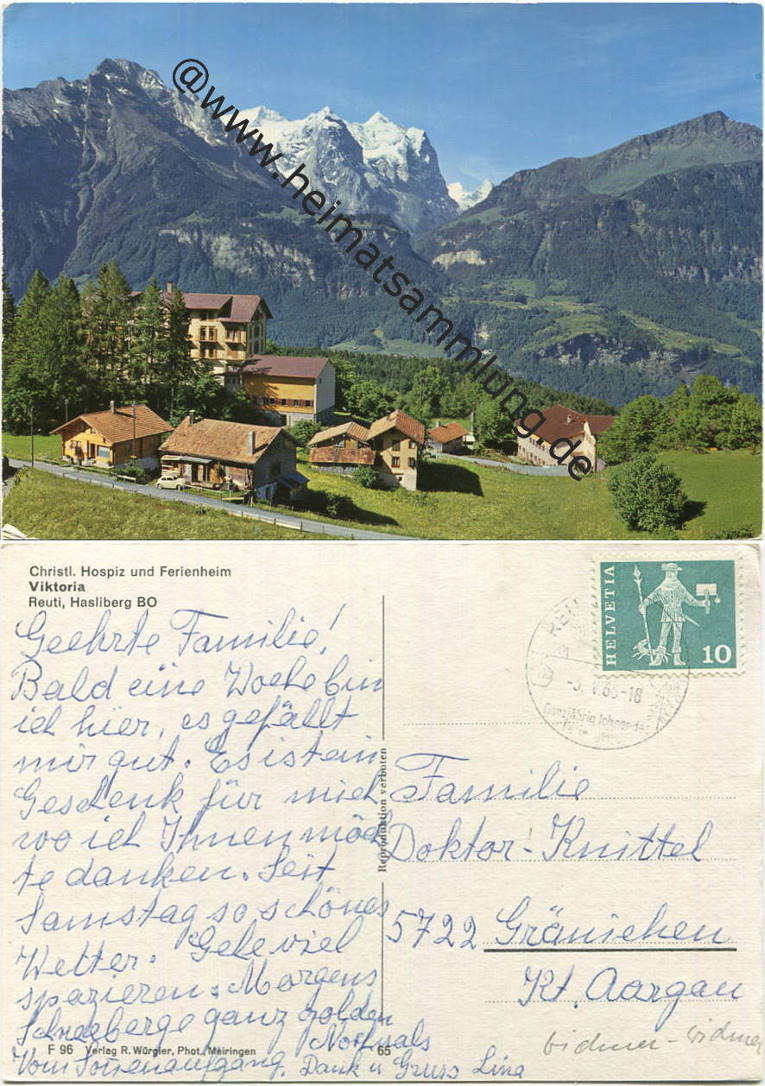 @www.heimatsammlung.de
Christl. Hospiz und Ferienheim
Viktoria
Reuti, Hasliberg BO
HELVETIA
10
Ganzjährig lohnender
Geehrte Familie!
Bald eine Woche bin
ich hier, es gefällt
mir gut. Es ist ein
Geschenk für mich
wo ich Ihnen möch
te danken. Seit
Samstag so schönes
Wetter. Gehe viel
spazieren. Morgens
Schneeberge ganz golden
Vom Sonenaufgang. Nochmals
Dank u Gruss Lina
Reproduktion verboten
Familie
Doktor Knittel
5722 Gränichen
Kt. Aargau
widmer-widmer
F 96 Verlag R. Würgler, Phot., Meiringen
65